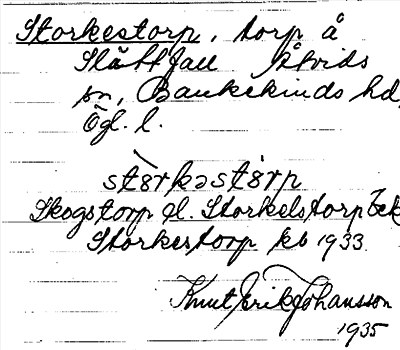 Storkestorp, torp å
Slättfall Åtvids
sn, Bankekinds hd,
Ögl. l.
stȯrkəstȯrp
Skogstorp el. Storkelstorp Ek
Storkestorp kb 1933.
Knut Erik Johansson
1935